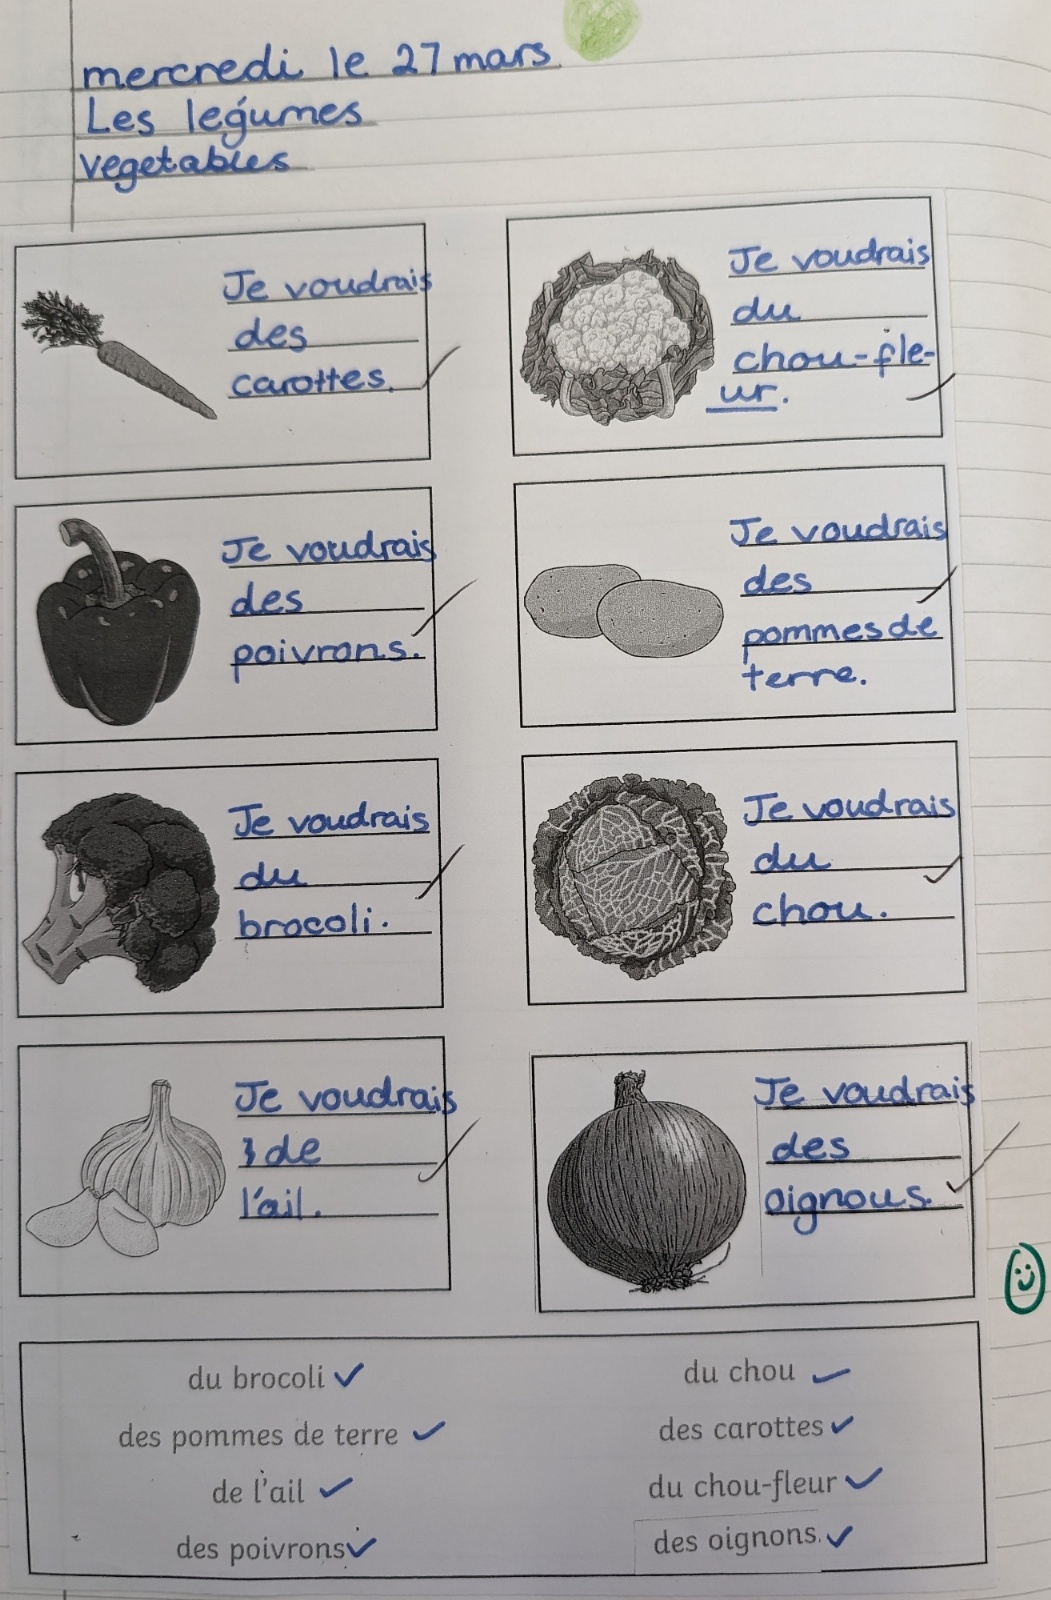 mercredi le 27 mars
Les legúmes
vegetables
Je voudrais
des
carottes.
Je voudrais
du
chou-fle-
ur.
Je voudrais
des
poivrons.
Je voudrais
des
pommes de
terre.
Je voudrais
du
brocoli.
Je voudrais
du
chou.
Je voudrais
de
l'ail.
Je voudrais
des
oignous.
du brocoli
du chou
des pommes de terre
des carottes
de l'ail
du chou-fleur
des poivrons
des oignons.